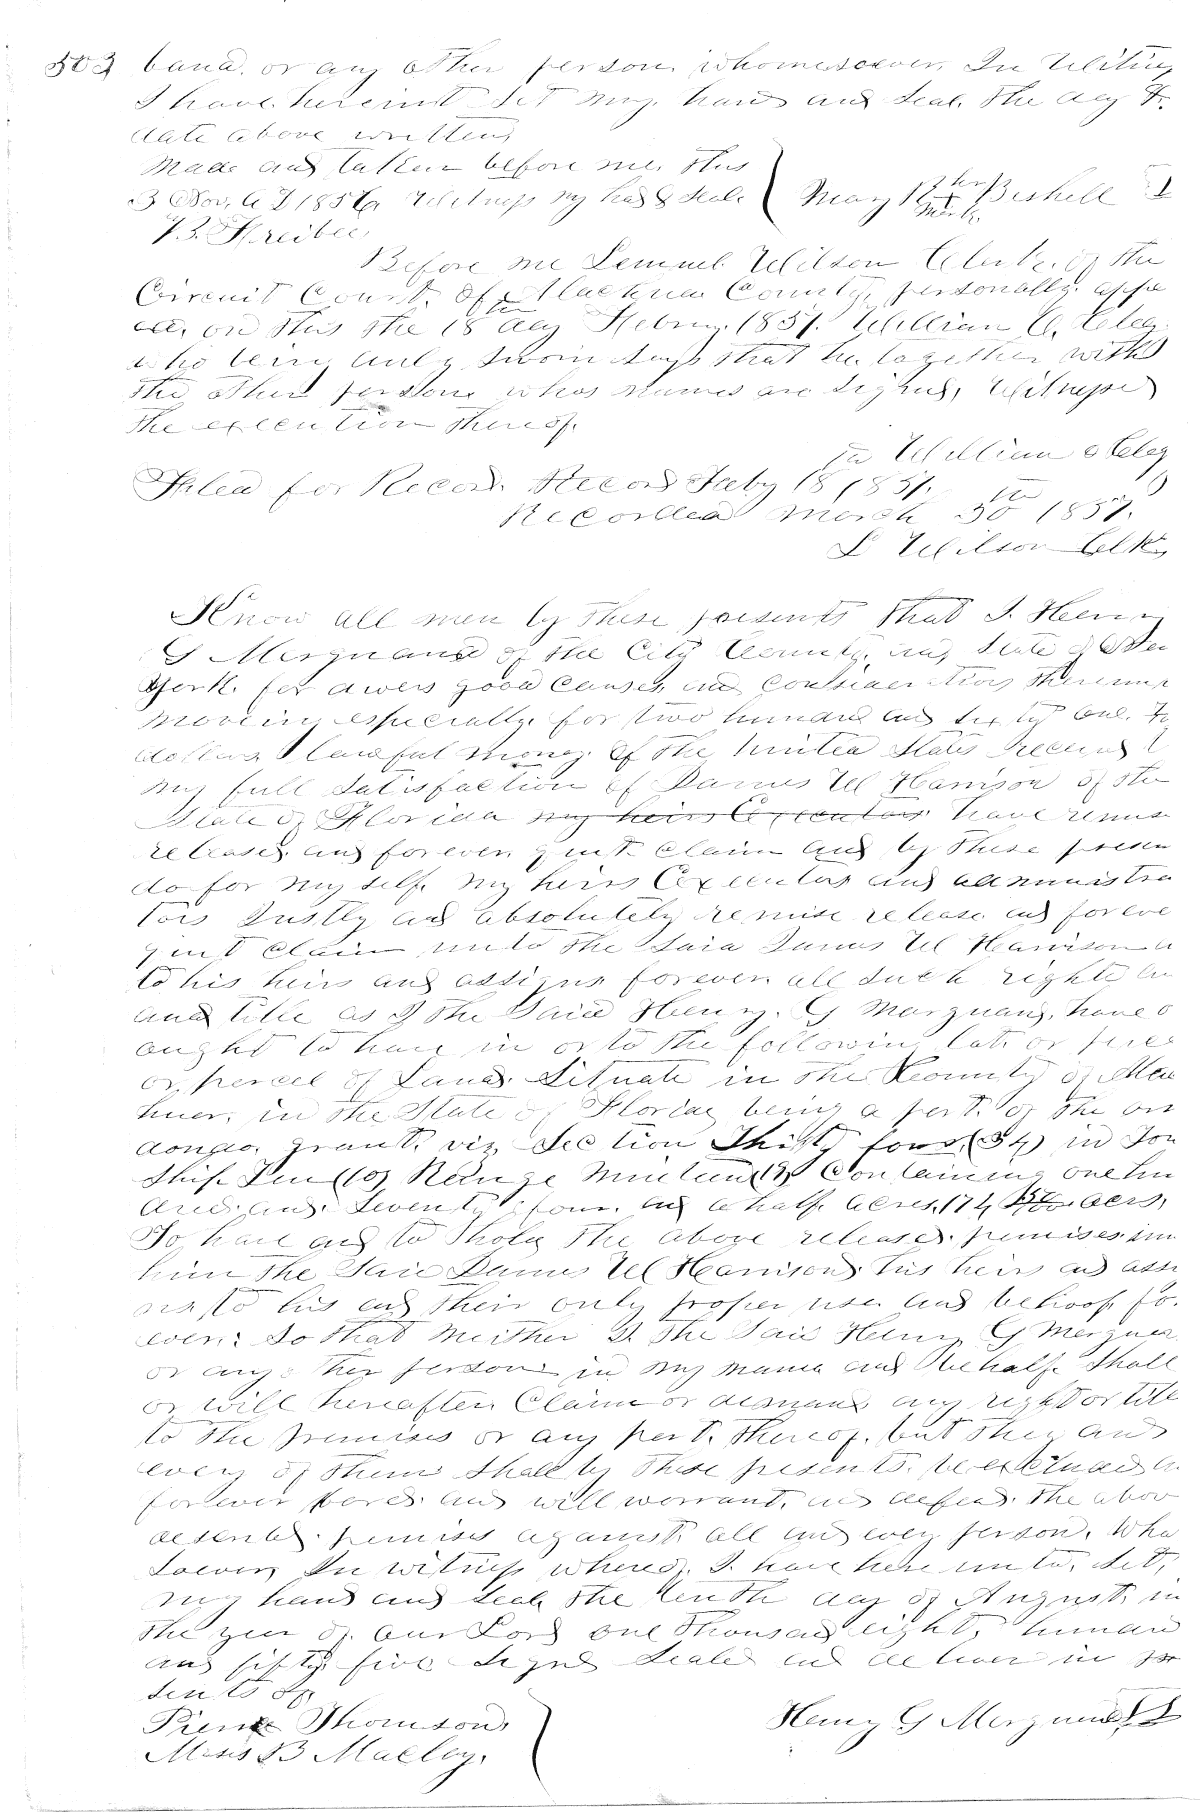 503 band. or any other person whomesoever. In Witness
I have hereunt Set my. hand and Seal The day &
date above written
Made and taken before me this
3 Nov. A D 1856 Witness My had & Seale
Mary R her X mark Bushell
F. B.
Before me Lemuel Wilson Clerk. of the
Circuit Court. Of Alachua County, personally. appe
on this the 18 th day Febru. 1857. William
who being duly Sworn Says that he together with
the other persons whos names are Signed, Witnesse
the execution thereof.
William
Filed for Record. Record Feby 18 1857.
Recorded March 30 th 1857.
L Wilson Clk
Know all men by these presents that I. Henry
G Marquand of the City County, and State of New
York. for divers good Causes and consideration thereunt
moveing especially. for two hundred and sixty one.
dollars lawful money. Of the United States received
my full Satisfaction of James W Harrison of the
State of Florida my heirs Executors have remise
released. and forever. quit claim and by these presen
do for my self. my heirs Executors and administra
tors Justly and absolutely remise release. and foreve
quit claim unto the Said James W Harrison
to his heirs and assigns forever. all such right
and title as I the Said Henry. G Marquand. have o
ought to have in or to the following lot or piece
or. percel of Land. Situate in the County of Alac
huer. in the State of Florida being a part. of the arr
dondo. grant. viz Section Thirty four (34) in Ton
ship Ten (10) Range Nineteen (19) Containing one hun
dred. and. Seventy four. and a half. acres. 174 50/100 acers.
To have and to Hold the above released. premises
him the Said James W Harrison. his heirs and assi
to his and their only proper use. and behoof. fo
ever: So that Neither I. the Said Henry G Marquan
or any other person in my name and Behalf. Shall
or will hereafter Claim or demand any right or titl
to the premises or any part. thereof. but they and
every of them Shall by these presents. be excluded
forever bared. and will warrant. and defend. the abov
described. premises against. all and every person. Who
soever. In witness whereof. I have here unto. Set.
my hand and Seal the tenth day of August. in
the year of. our Lord one thousand eight. hundred
and fifty five. Signed Sealed and deliver in pre
sents of.
Pierre Thomson.
Henry G Marquand
Moses B Maclay.